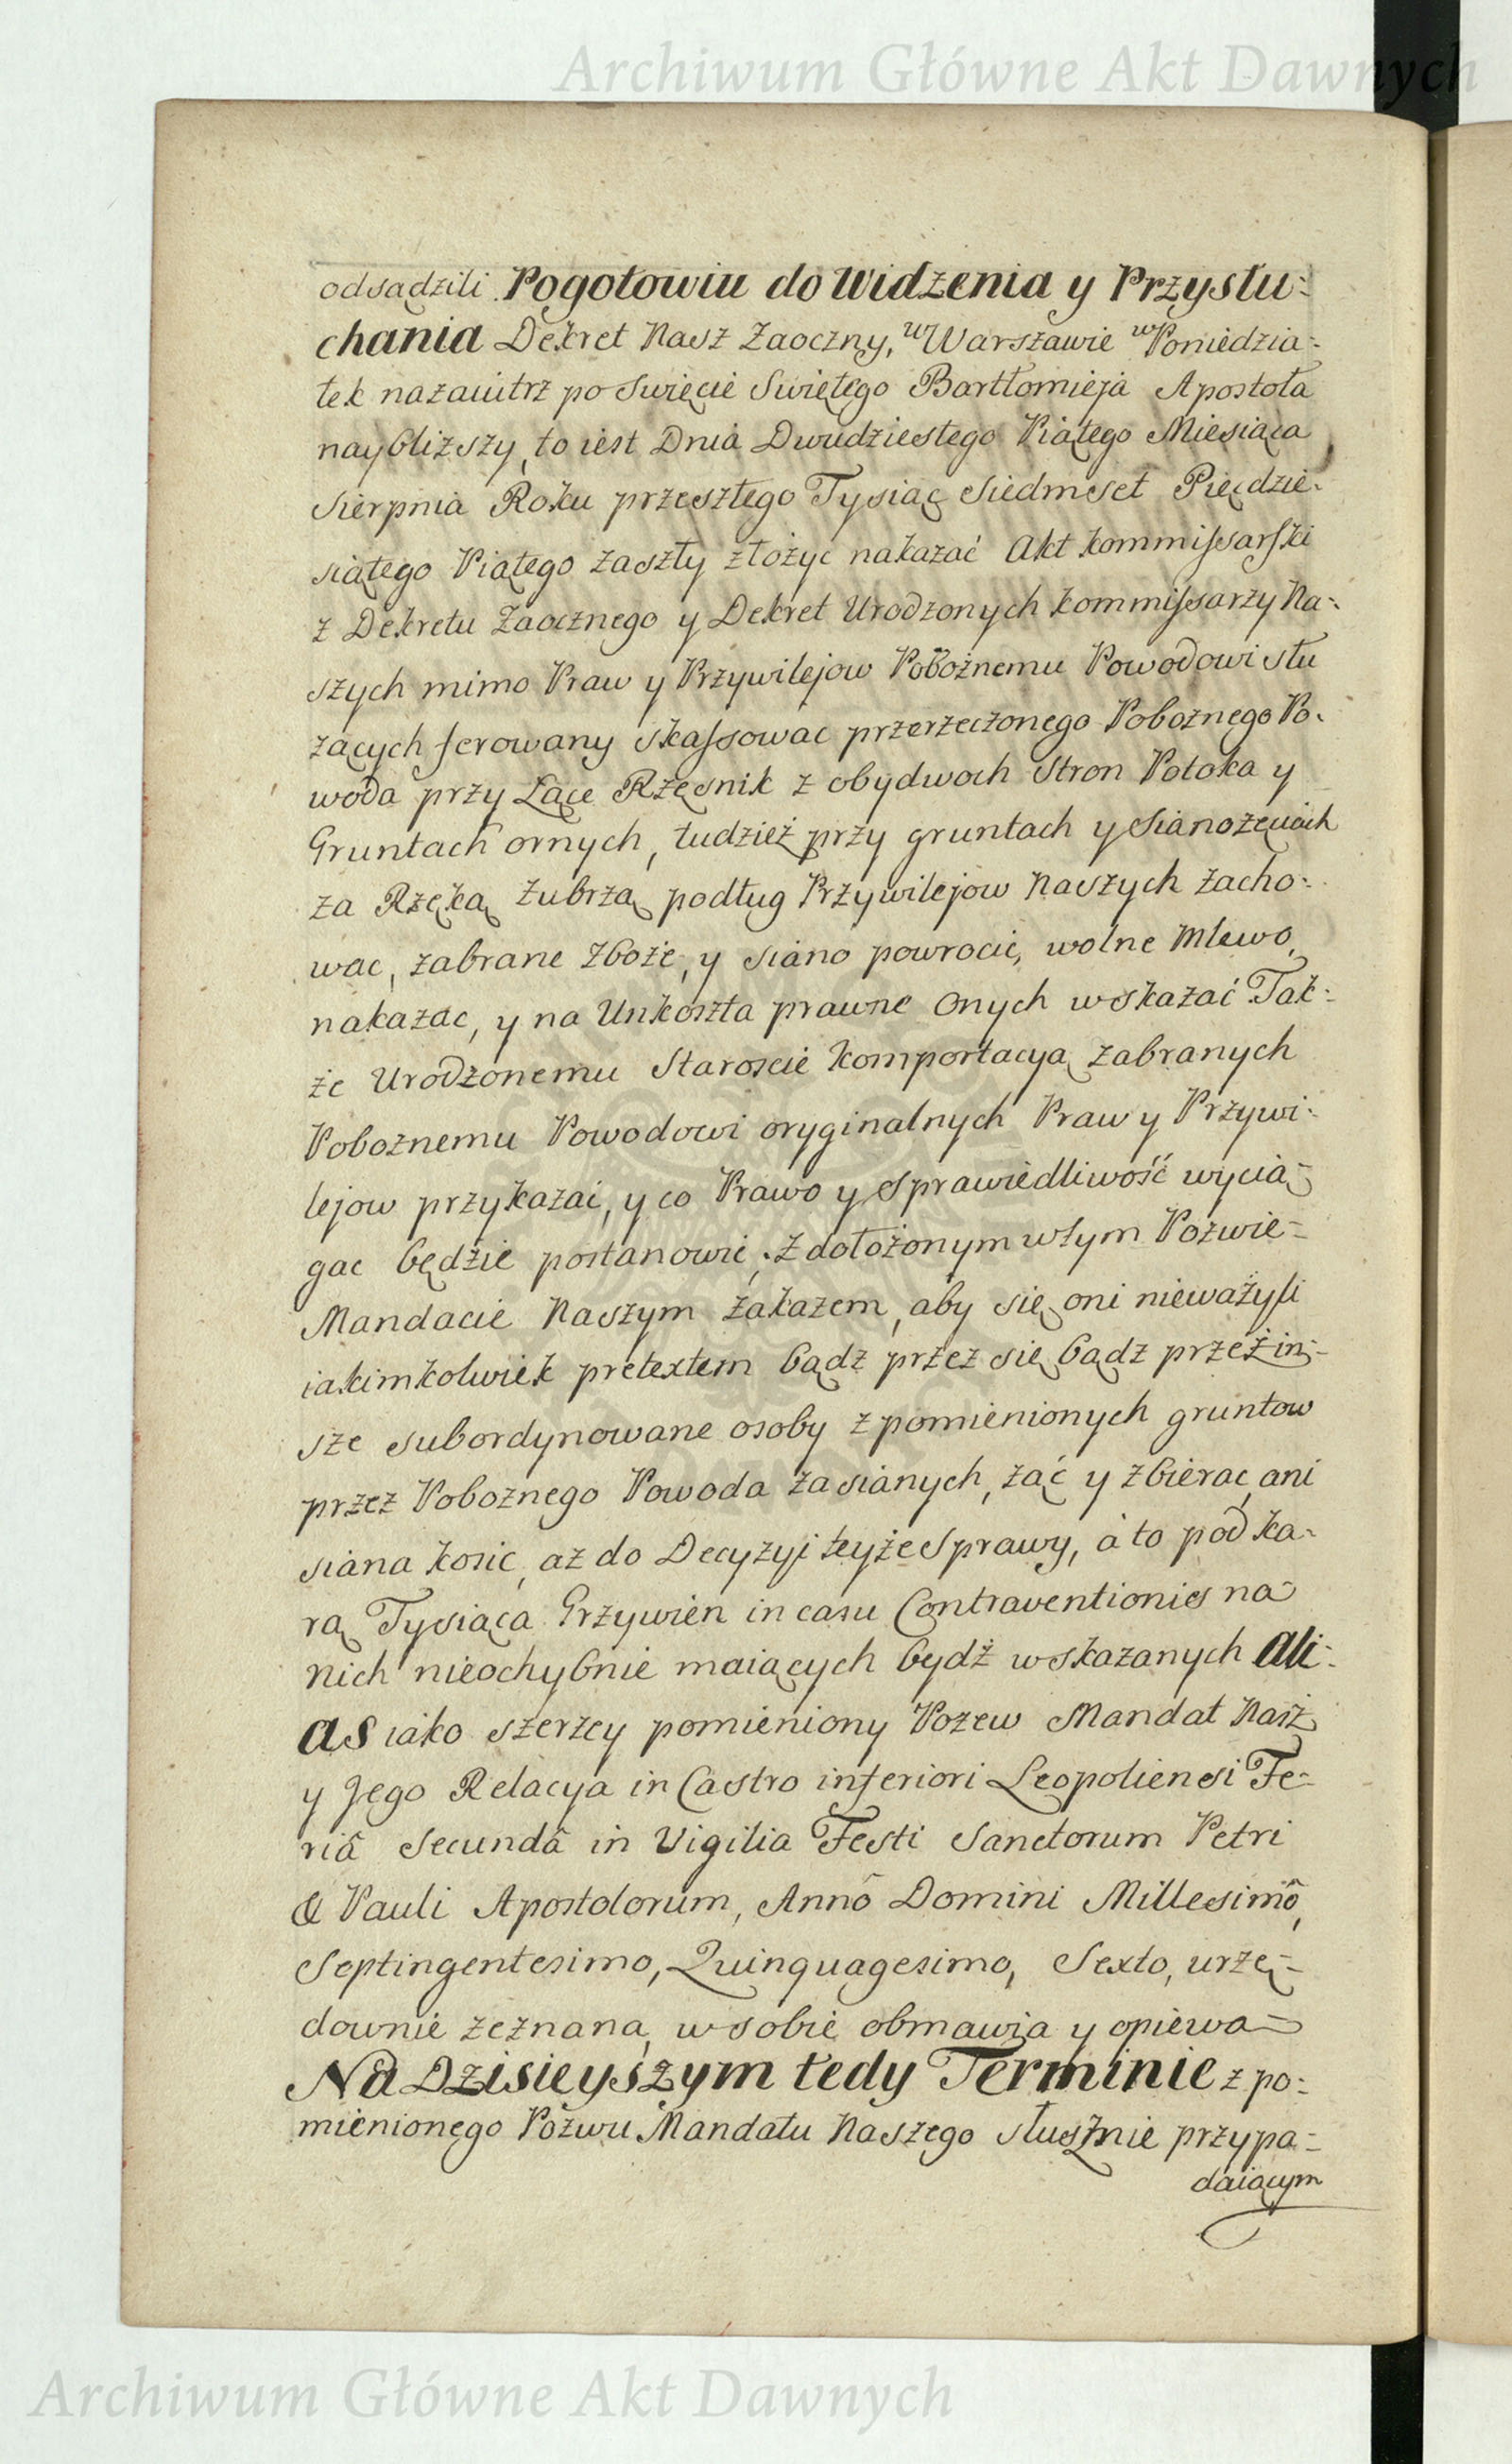 Archiwum Główne Akt Dawnych
odsądzili. Pogotowiu do Widzenia y Przysłu:
chania Dekret Nasz Zaoczny, w Warszawie w Poniedzia:
łek nazaiutrz po Swięcie Swiętego Bartłomieja Apostoła
naybliższy, to iest Dnia Dwudziestego Piątego Miesiąca
Sierpnia Roku przeszłego Tysiąc Siedmset Pięcdzie:
siątego Piątego zaszły złożyc nakazać Akt Kommissarski
z Dekretu Zaocznego y Dekret Urodzonych Kommissarzy Na:
szych mimo Praw y Przywilejow Pobożnemu Powodowi słu
zących ferowany skassowac przerzeczonego Pobożnego Po:
woda przy Łące Rzęsnik z obydwoch Stron Potoka y
Gruntach ornych, tudzież przy gruntach y Sianozęciach
za Rzeką Zubrzą podług Przywilejow Naszych zacho:
wac, zabrane Zboże, y siano powrocic, wolne Mlewo
nakazac, y na Unkoszta prawne Onych wskazać Tak:
że Urodzonemu Staroscie Komportacyą zabranych
Pobożnemu Powodowi oryginalnych Praw y Przywi:
lejow przykazai, y co Prawo y Sprawiedliwość wycią=
gac będzie postanowic, z dołożonym w tym Pozwie=
Mandacie Naszym zakazem, aby się oni nieważyli
iakimkolwiek pretextem bądz przez się bądz przez in=
sze subordynowane osoby z pomienionych gruntow
przez Pobożnego Powoda zasianych, żąć y zbierac, ani
siana kosic, aż do Decyzyi teyże Sprawy, à to pod ka:
rą Tysiąca Grzywien in casu Contraventionis na
nich nieochybnie maiących bydż wskazanych Ali:
as iako szerzey pomieniony Pozew Mandat Nasz
y Jego Relacya in Castro inferiori Leopoliensi Fe=
riâ Secundâ in Vigilia Festi Sanctorum Petri
& Pauli Apostolorum, Annô Domini Millesimô,
Septingentesimo, Quinquagesimo, Sexto, urzę=
downie zeznana, w sobie obmawia y opiewa=
Na Dzisieyszym tedy Terminie z po:
mienionego Pozwu Mandatu Naszego słusznie przypa=
daiącym
Archiwum Główne Akt Dawnych